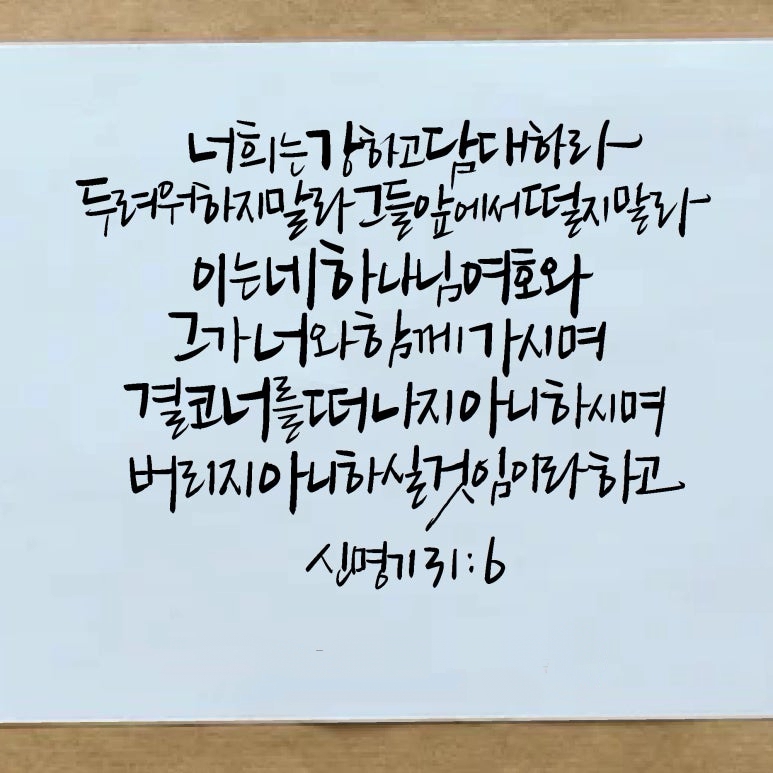 너희는 강하고 담대하라
두려워하지 말라 그들 앞에서 떨지 말라
이는 네 하나님 여호와
그가 너와 함께 가시며
결코 너를 떠나지 아니하시며
버리지 아니하실 것임이라 하고
신명기 31:6